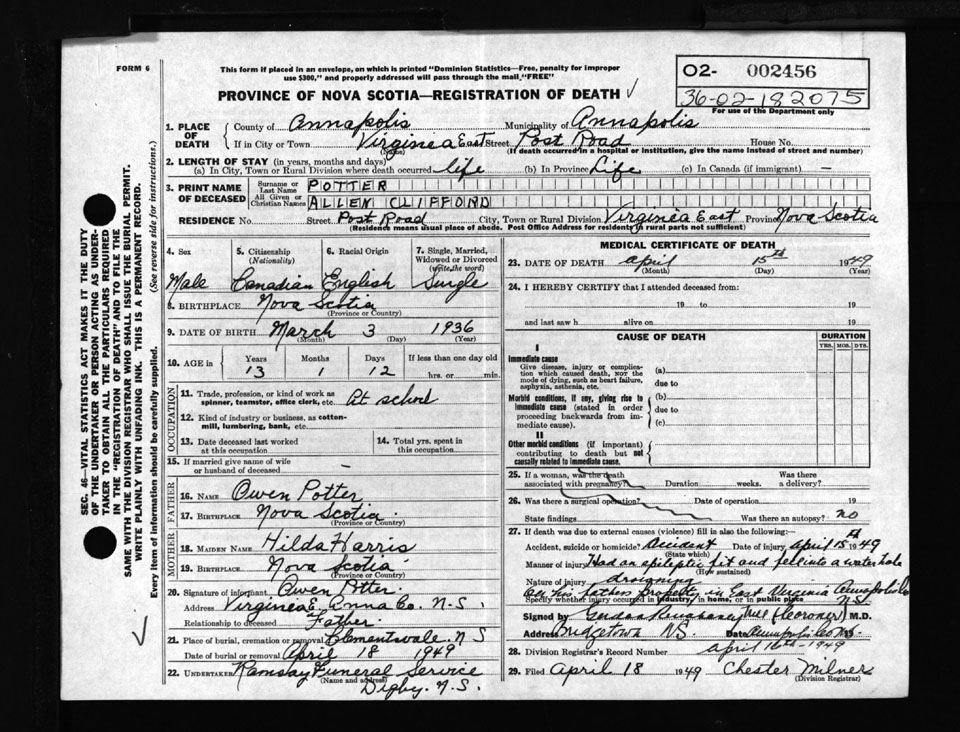 FORM 6
This form if placed in an envelope, on which is printed "Dominion Statistics—Free, penalty for improper
use $300," and properly addressed will pass through the mail "FREE"
PROVINCE OF NOVA SCOTIA—REGISTRATION OF DEATH
02- 002456
36-02-182075
For use of the Department only
1. PLACE OF DEATH
County of Annapolis Municipality of Annapolis
If in City or Town Virginiea East Street Post Road House No.
(Name) (If death occurred in a hospital or institution, give the name instead of street and number)
2. LENGTH OF STAY (in years, months and days)
(a) In City, Town or Rural Division where death occurred life (b) In Province Life (c) In Canada (if immigrant) —
3. PRINT NAME OF DECEASED
Surname or Last Name POTTER
All Given or Christian Names ALLEN CLIFFORD
RESIDENCE No. Street Post Road City, Town or Rural Division Virginiea East Province Nova Scotia
(Residence means usual place of abode. Post Office Address for residents in rural parts not sufficient)
4. Sex 5. Citizenship (Nationality) 6. Racial Origin 7. Single, Married, Widowed or Divorced (write the word)
Male Canadian English Single
8. BIRTHPLACE Nova Scotia
(Province or Country)
9. DATE OF BIRTH March 3 1936
(Month) (Day) (Year)
10. AGE in Years Months Days If less than one day old
13 1 12 hrs. or min.
OCCUPATION
11. Trade, profession, or kind of work as spinner, teamster, office clerk, etc. At school
12. Kind of industry or business, as cotton-mill, lumbering, bank, etc.
13. Date deceased last worked at this occupation
14. Total yrs. spent in this occupation
15. If married give name of wife or husband of deceased —
FATHER
16. NAME Owen Potter
17. BIRTHPLACE Nova Scotia
(Province or Country)
MOTHER
18. MAIDEN NAME Hilda Harris
19. BIRTHPLACE Nova Scotia
(Province or Country)
20. Signature of informant Owen Potter
Address Virginea E. Anna Co. N.S.
Relationship to deceased Father
21. Place of burial, cremation or removal Clementsvale N S
Date of burial or removal April 18 1949
22. UNDERTAKER Ramsay Funeral Service
(Name and address)
Digby. N.S.
MEDICAL CERTIFICATE OF DEATH
23. DATE OF DEATH April 15th 1949
(Month) (Day) (Year)
24. I HEREBY CERTIFY that I attended deceased from:
19 to 19
and last saw h alive on 19
CAUSE OF DEATH
DURATION
YRS. MOS. DYS.
I
Immediate cause
Give disease, injury or complication which caused death, not the mode of dying, such as heart failure, asphyxia, asthenia, etc.
(a)
due to
Morbid conditions, if any, giving rise to immediate cause (stated in order proceeding backwards from immediate cause).
(b)
due to
(c)
II
Other morbid conditions (if important) contributing to death but not causally related to immediate cause.
25. If a woman, was the death associated with pregnancy? Duration weeks. Was there a delivery?
26. Was there a surgical operation? Date of operation 19
State findings Was there an autopsy? no
27. If death was due to external causes (violence) fill in also the following:—
Accident, suicide or homicide? Accident Date of injury April 15th 1949
(State which)
Manner of injury Had an epileptic fit and fell into a water hole
(How sustained)
Nature of injury drowning
On his fathers property in East Virginia Annapolis Co
Specify whether injury occurred in industry, in home, or in public place N.S.
Signed by (Coroner) M.D.
Address Bridgetown N.S. Date
28. Division Registrar's Record Number April 16th - 1949
29. Filed April 18 1949 Chester Milner
(Division Registrar)
SEC. 46—VITAL STATISTICS ACT MAKES IT THE DUTY
OF THE UNDERTAKER OR PERSON ACTING AS UNDER-
TAKER TO OBTAIN ALL THE PARTICULARS REQUIRED
IN THE "REGISTRATION OF DEATH" AND TO FILE THE
SAME WITH THE DIVISION REGISTRAR WHO SHALL ISSUE THE BURIAL PERMIT.
WRITE PLAINLY WITH UNFADING INK. THIS IS A PERMANENT RECORD.
Every item of information should be carefully supplied. (See reverse side for instructions.)